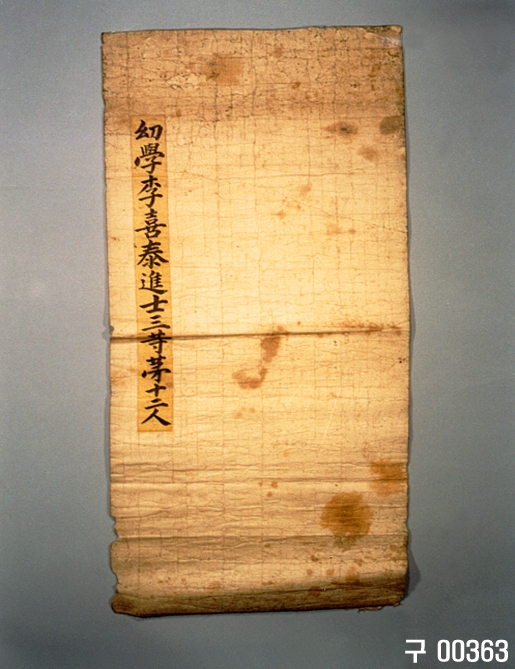 幼學李喜泰進士三等苐十二人
구 00363